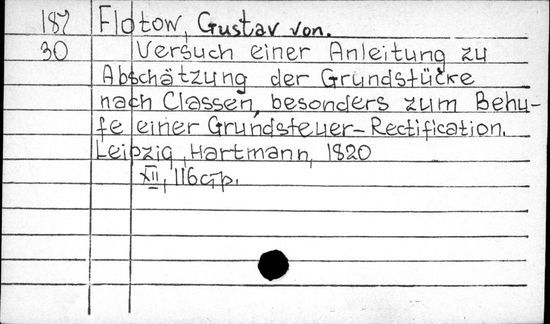 187 Flotow, Gustav von.
30 Versuch einer Anleitung zu
Abschätzung der Grundstücke
nach Classen, besonders zum Behu-
fe einer Grundsteuer-Rectification.
Leipzig, Hartmann, 1820
XII, 116 стр.